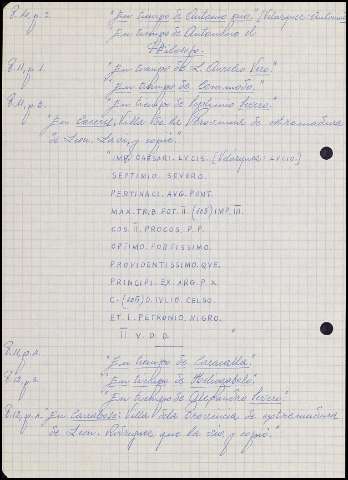 "En tiempo de Antonino pio." (Velázquez: Antonino
"En tiempo de Antonino el
Philosofo.
"En tiempo de L. Aurelio Vero."
"En tiempo de Commodo."
"En tiempo de Septimio Severo."
"En Caceres, Villa de la Provincia de extremadura
de Leon.
"IMP. CAESARI. LVCIS. [Velázquez: LVCIO]
SEPTIMIO. SEVERO.
PERTINACI. AVG. PONT.
MAX. TRIB. POT. II. (sos) IMP. III.
COS. II. PROCOS. P. P.
OPTIMO. FORTISSIMO.
PROVIDENTISSIMO. QVE.
PRINCIPI. EX. ARG. P. X.
C. (sos) D. IVLIO. CELSO.
ET. L. PETRONIO. NIGRO.
II V. D. D. "
"En tiempo de Caracalla."
"En tiempo de Heliogabalo."
"En tiempo de Alexandro Severo."
Villa dela Provincia de extremadura
de Leon. Rodriguez que la vio, y copió."